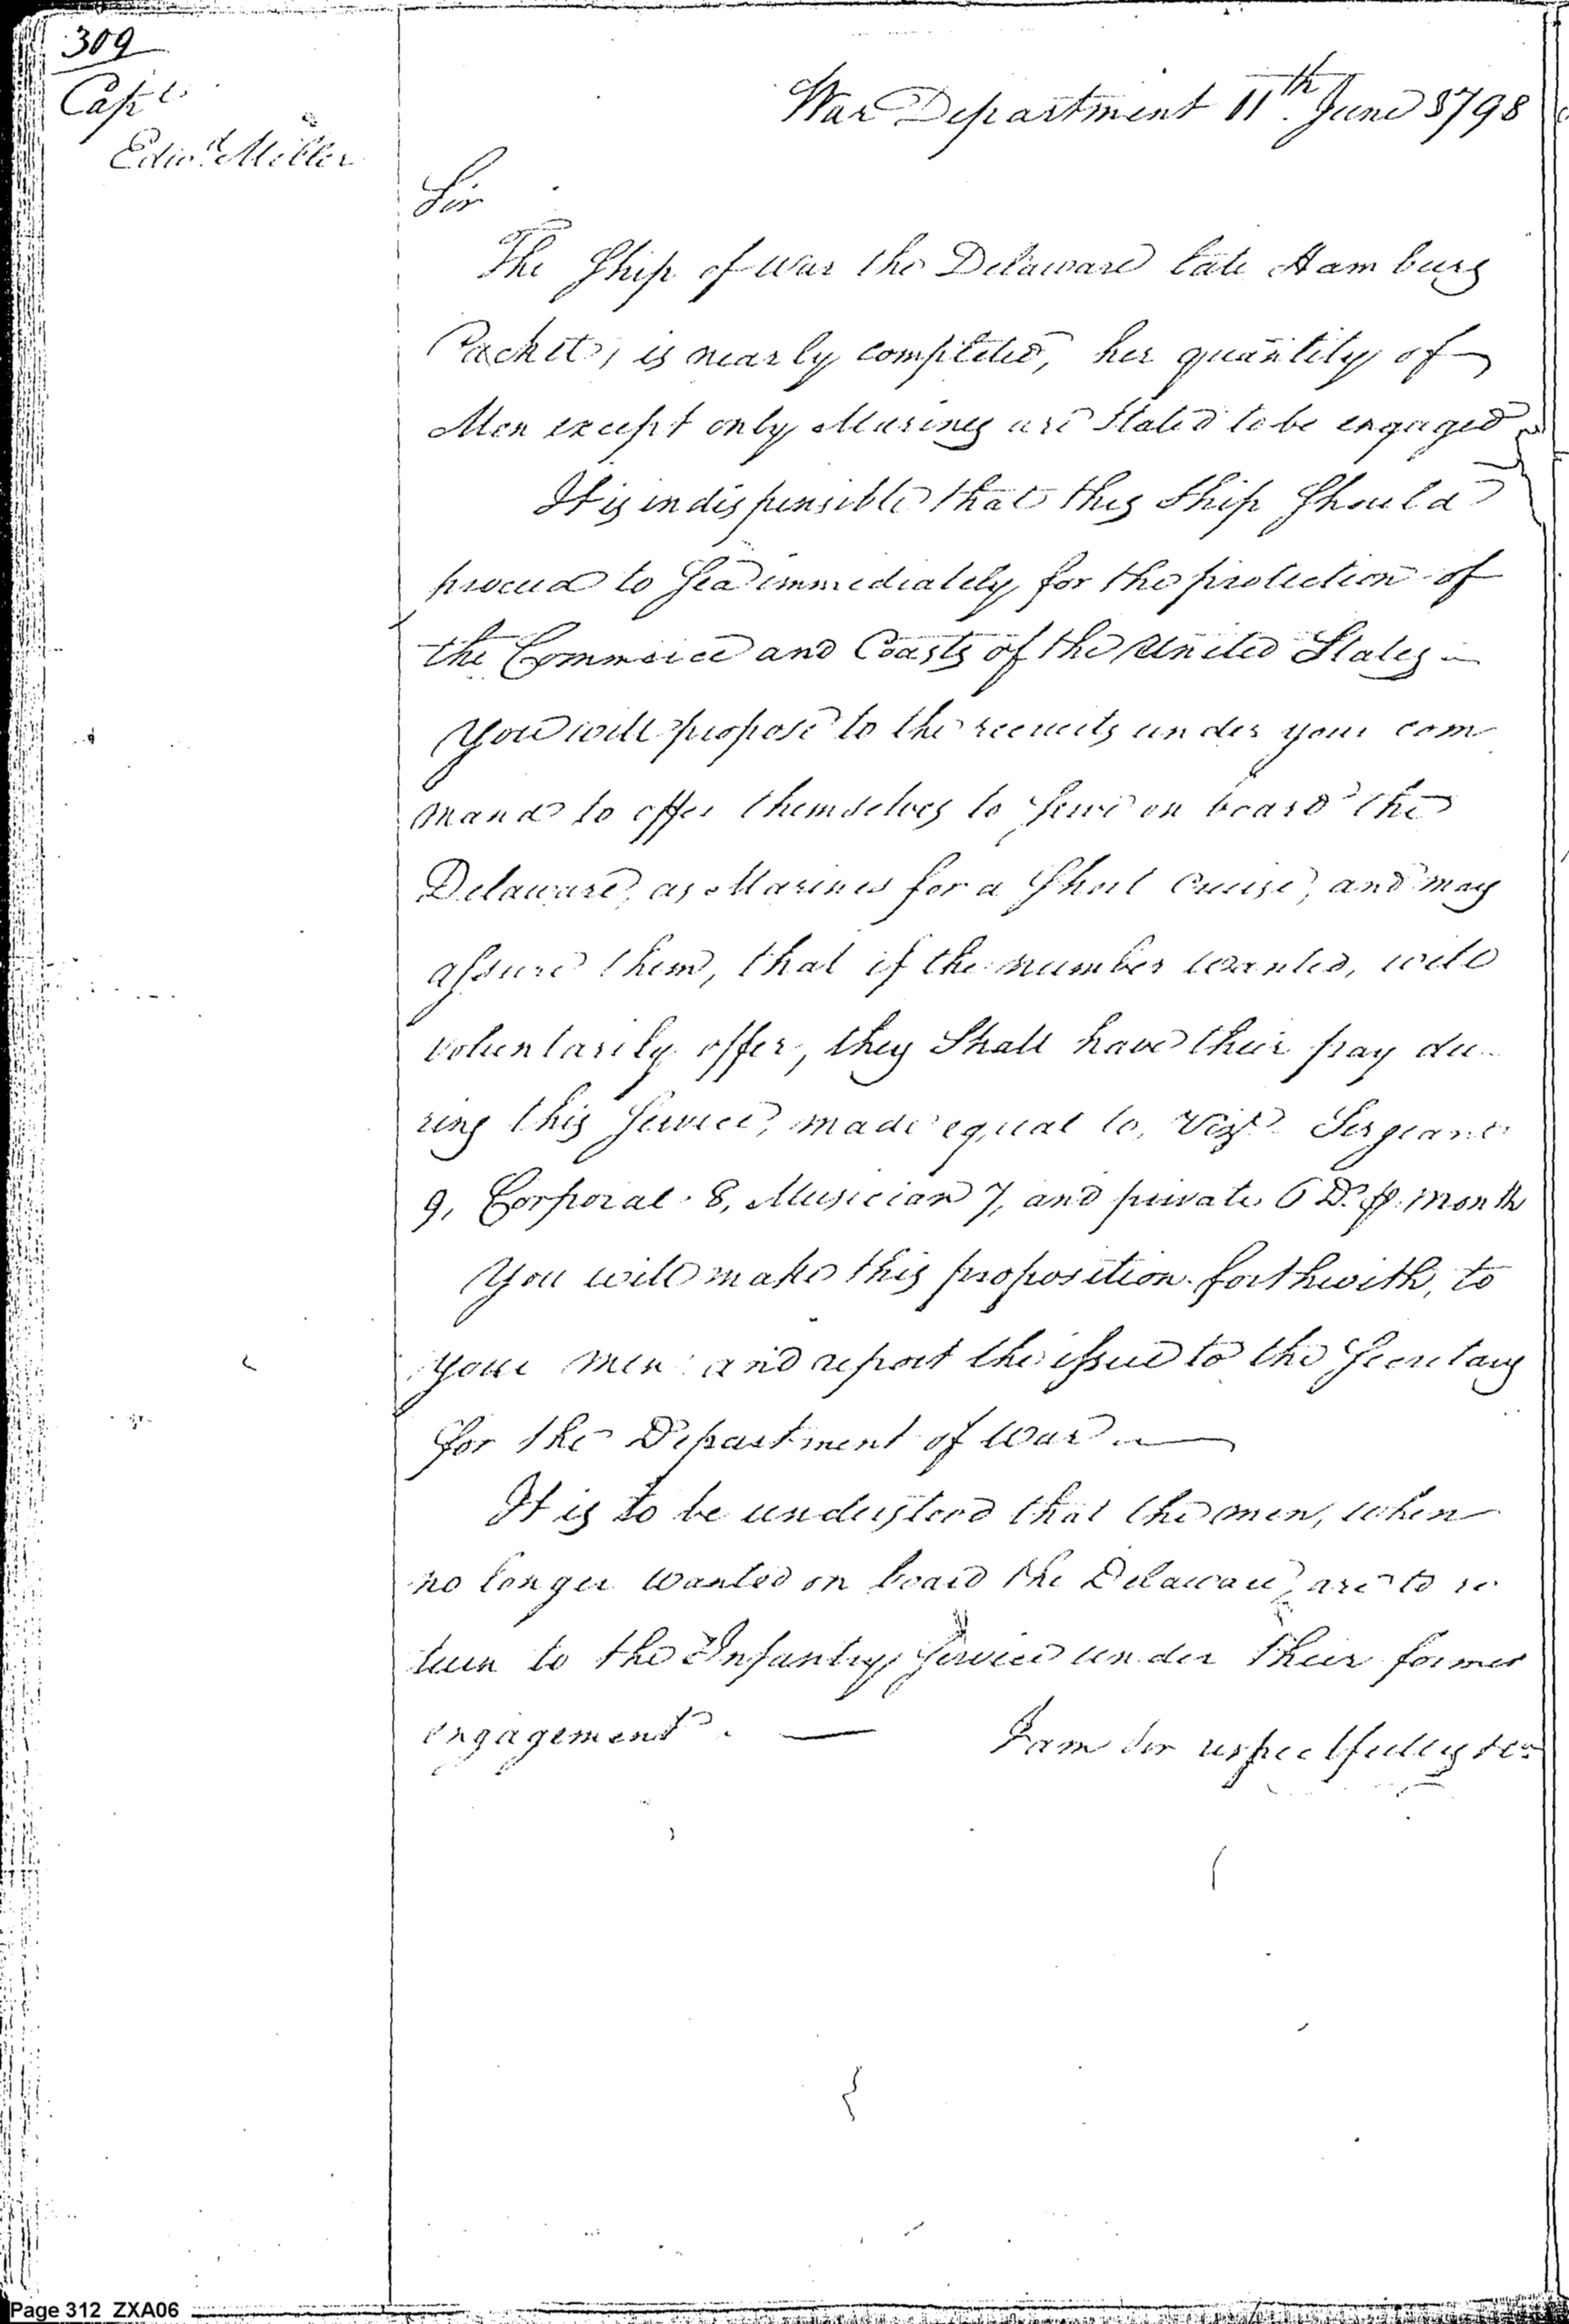 309
Capt.
Edwd. Miller
War Department 11th June 1798
Sir
The Ship of War the Delaware late Hamburg
Packet, is nearly completed, her quantity of
Men except only Marines are Stated to be engaged
It is indispensible that this Ship Should
proceed to Sea immediately for the protection of
the Commerce and Coasts of the United States —
You will propose to the recruits under your com
mand to offer themselves to Serve on board the
Delaware, as Marines for a Short Cruise, and may
assure them, that if the number wanted, will
voluntarily offer, they Shall have their pay du-
ring this Service, made equal to, Vizt. Sergeant
9, Corporal 8, Musician 7, and private 6 Ds. ⅌ month
You will make this proposition forthwith, to
your men and report the issue to the Secretary
for the Department of War —
It is to be understood that the men, when
no longer wanted on board the Delaware, are to re
turn to the Infantry Service under their former
engagement. — I am Sir respectfully &ca
Page 312 ZXA06